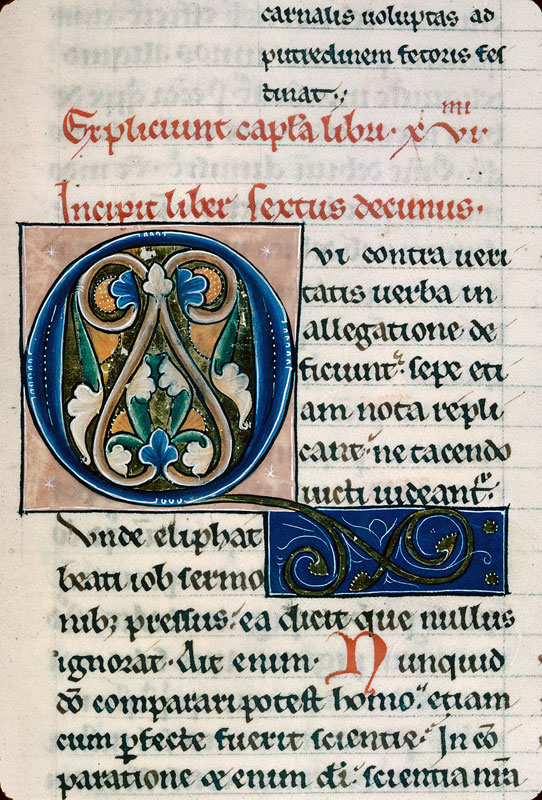 carnalis uoluptas ad
putredinem fetoris fes
tinat.,
Expliciunt capl'a libri. xvi. mi
Incipit liber sextus decimus.
QVi contra ueri
tatis uerba in
allegatione de
ficiunt: sepe eti
am nota repli
cant: ne tacendo
uicti uideant᷑.
Vnde eliphat
beati iob sermo
nib; pressus: ea dicit que nullus
ignorat. Ait enim. Nunquid
dō comparari potest homo: etiam
cum ꝑfecte fuerit scientie. In cō
paratione &enim di̅. scientia nr̅a